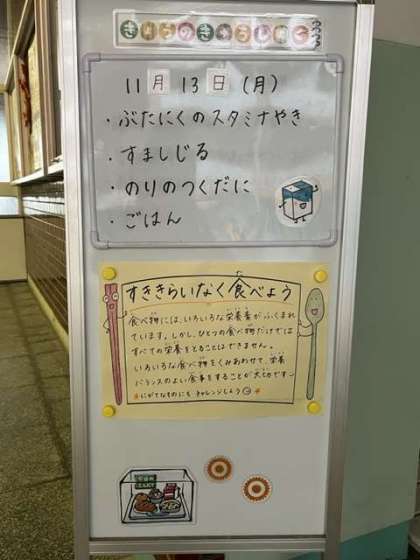 きょうのきゅうしょく
11月13日(月)
・ぶたにくのスタミナやき
・すましじる
・のりのつくだに
・ごはん
すききらいなく食べよう
食べ物には、いろいろな栄養素がふくまれ
ています。しかし、ひとつの食べ物だけでは
すべての栄養をとることはできません。
いろいろな食べ物をくみあわせて、栄養
バランスのよい食事をすることが大切です。
にがてなものにもチャレンジしよう